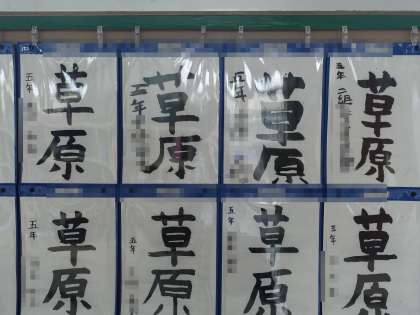 草原
五年
草原
五年
草原
五年
草原
五年二組
草原
五年
草原
五年
草原
五年
草原
五年